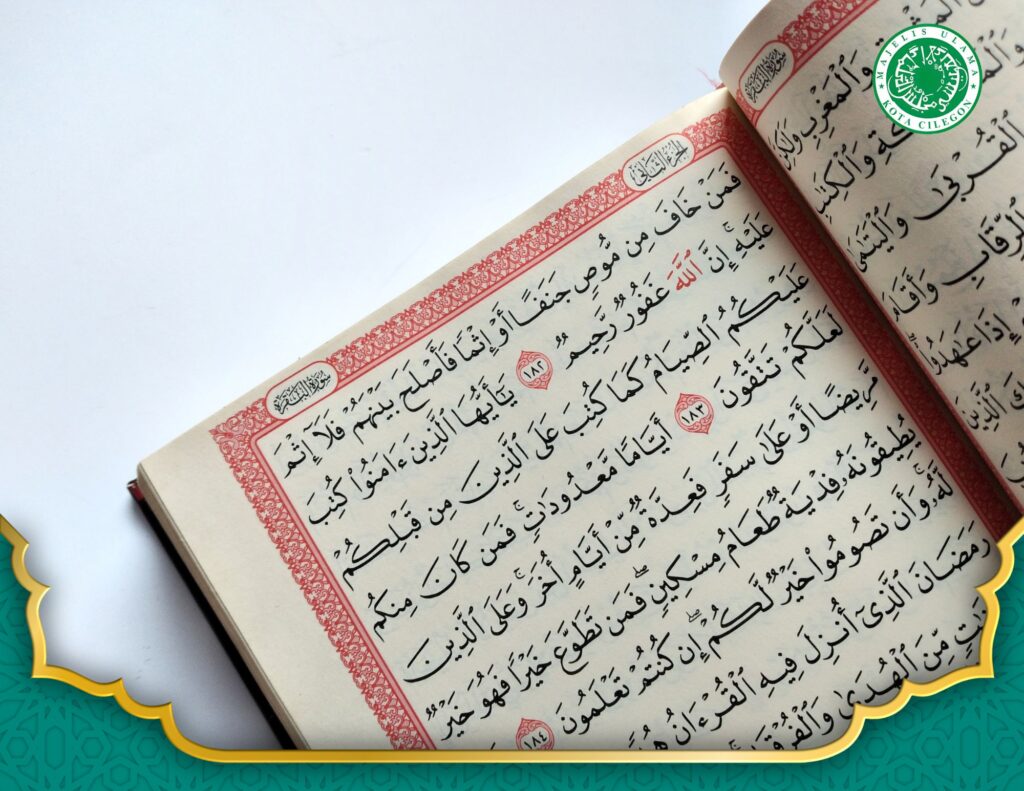 MAJELIS ULAMA
KOTA CILEGON
سورة البقرة
وَٱلۡمَغۡرِبِ
وَٱلۡكِتَٰبِ
ٱلۡقُرۡبَىٰ وَٱلۡيَتَٰمَىٰ
ٱلرِّقَابِ وَأَقَامَ
إِذَا عَٰهَدُواْ
ٱلَّذِينَ
الجزء الثاني
سورة البقرة
فَمَنۡ خَافَ مِن مُّوصٖ جَنَفًا أَوۡ إِثۡمٗا فَأَصۡلَحَ بَيۡنَهُمۡ فَلَآ إِثۡمَ
عَلَيۡهِۚ إِنَّ ٱللَّهَ غَفُورٞ رَّحِيمٞ ١٨٢ يَٰٓأَيُّهَا ٱلَّذِينَ ءَامَنُواْ كُتِبَ
عَلَيۡكُمُ ٱلصِّيَامُ كَمَا كُتِبَ عَلَى ٱلَّذِينَ مِن قَبۡلِكُمۡ
لَعَلَّكُمۡ تَتَّقُونَ ١٨٣ أَيَّامٗا مَّعۡدُودَٰتٖۚ فَمَن كَانَ مِنكُم
مَّرِيضًا أَوۡ عَلَىٰ سَفَرٖ فَعِدَّةٞ مِّنۡ أَيَّامٍ أُخَرَۚ وَعَلَى ٱلَّذِينَ
يُطِيقُونَهُۥ فِدۡيَةٞ طَعَامُ مِسۡكِينٖۖ فَمَن تَطَوَّعَ خَيۡرٗا فَهُوَ خَيۡرٞ
لَّهُۥۚ وَأَن تَصُومُواْ خَيۡرٞ لَّكُمۡۖ إِن كُنتُمۡ تَعۡلَمُونَ ١٨٤
رَمَضَانَ ٱلَّذِيٓ أُنزِلَ فِيهِ ٱلۡقُرۡءَانُ
مِّنَ ٱلۡهُدَىٰ